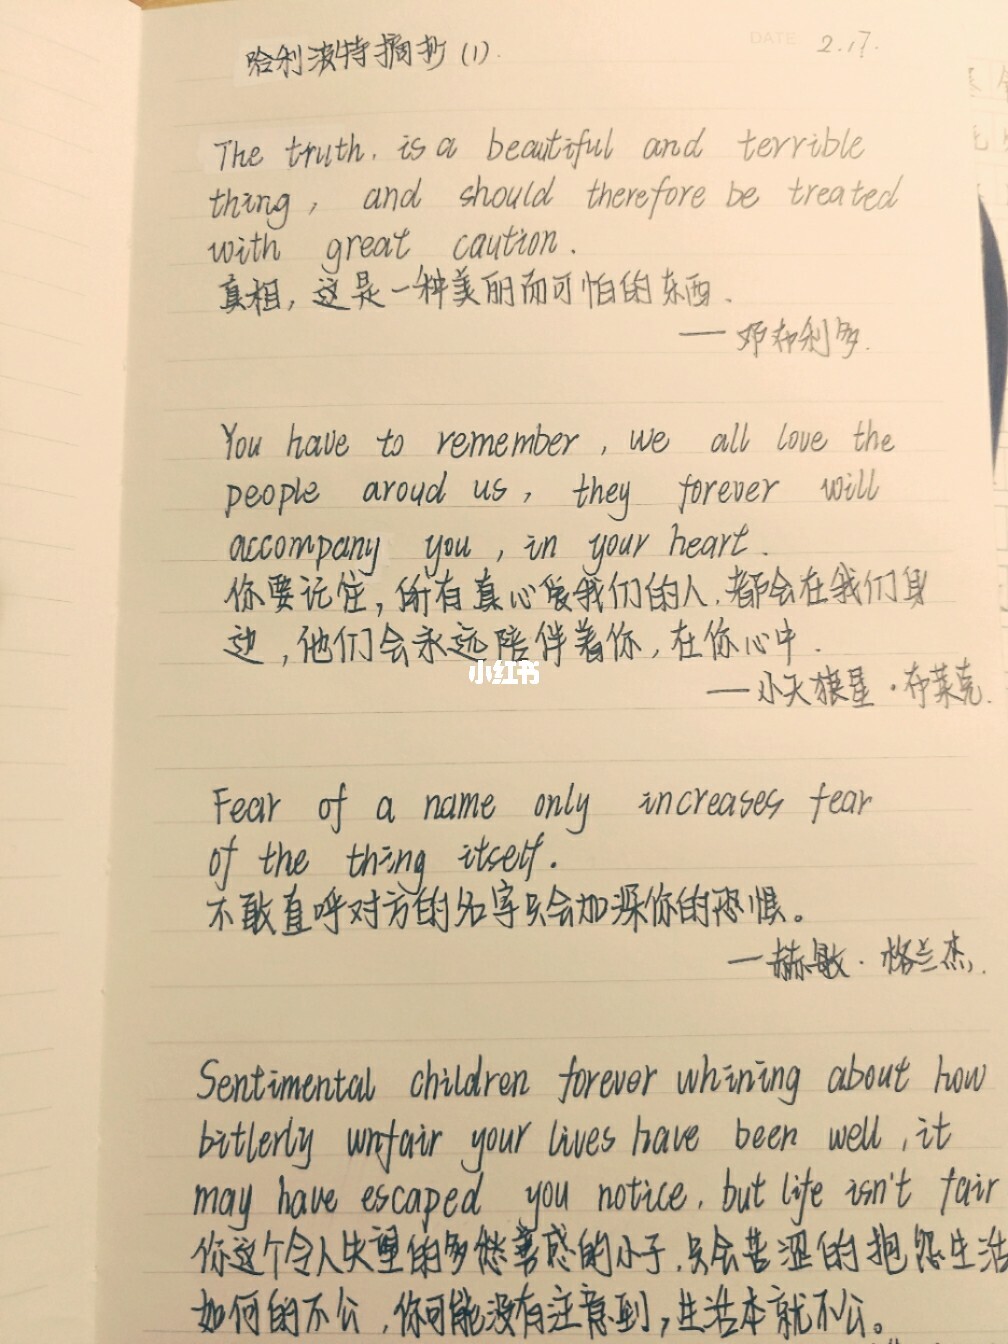 哈利波特摘抄(1).
DATE 2.17.
The truth. is a beautiful and terrible
thing, and should therefore be treated
with great caution.
真相，这是一种美丽而可怕的东西.
—邓布利多.
You have to remember, we all love the
people aroud us, they forever will
accompany you, in your heart.
你要记住，所有真心爱我们的人.都会在我们身
边,他们会永远陪伴着你,在你心中.
小红书
—小天狼星·布莱克.
Fear of a name only increases fear
of the thing itself.
不敢直呼对方的名字只会加深你的恐惧。
—赫敏·格兰杰.
Sentimental children forever whining about how
bitlerly unfair your lives have been well, it
may have escaped you notice, but life isn't fair
你这个令人失望的多愁善感的小子.只会苦涩的抱怨生活
如何的不公,你可能没有注意到,生活本就不公。